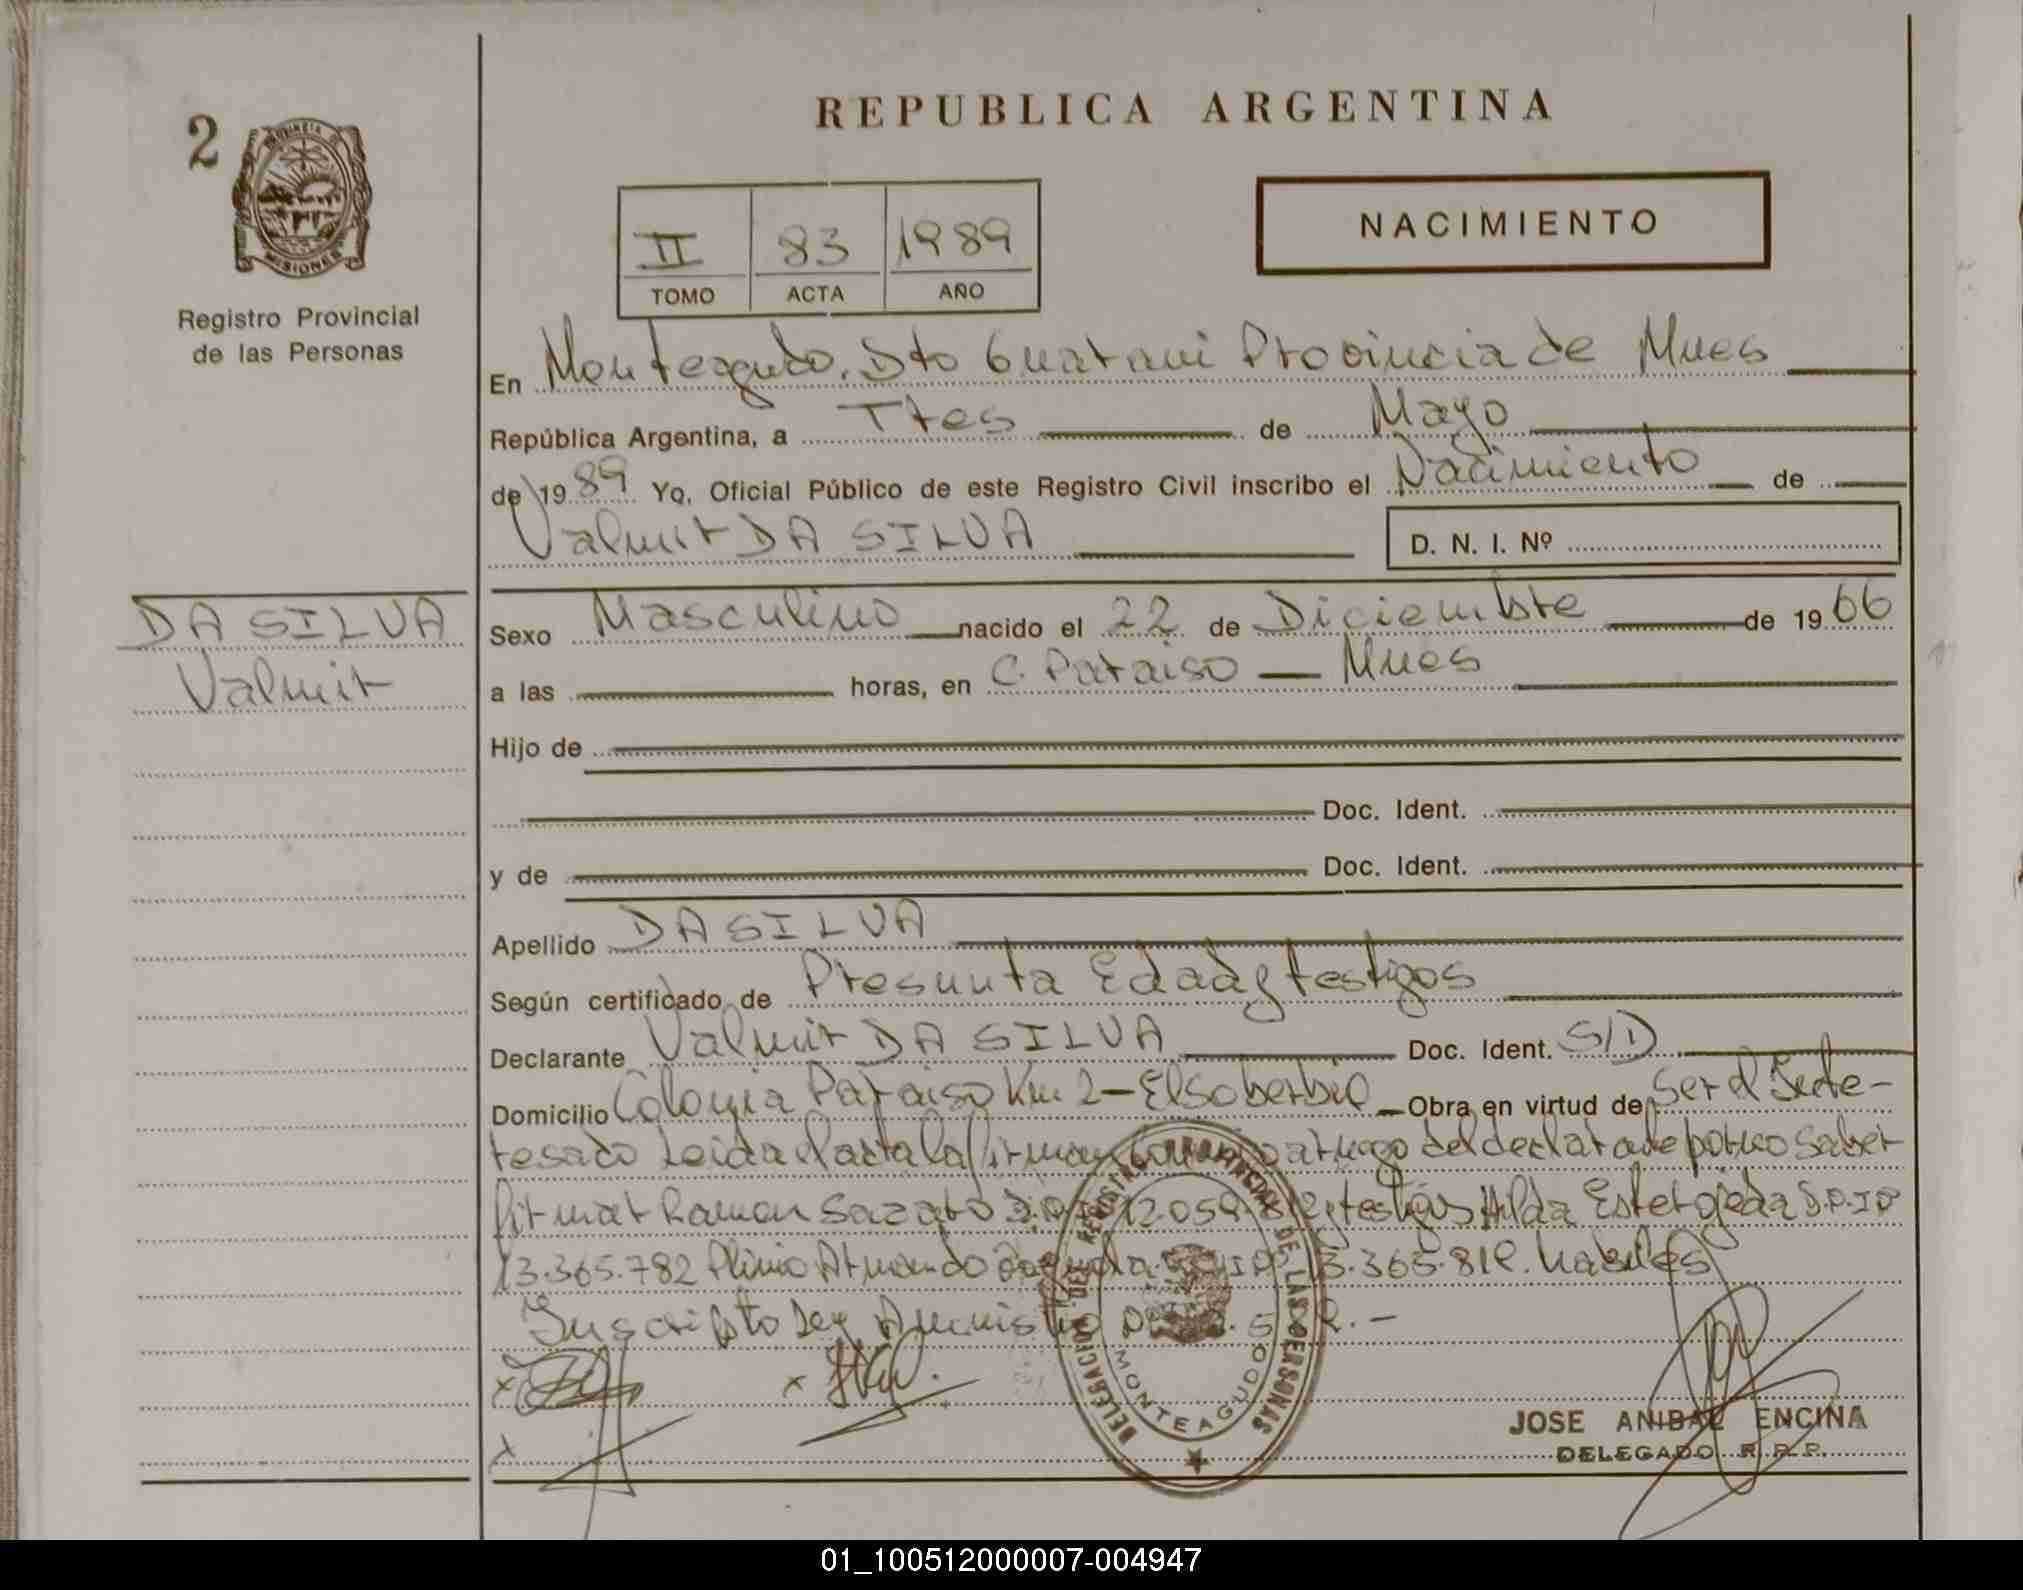 2
PROVINCIA DE
MISIONES
Registro Provincial
de las Personas
REPUBLICA ARGENTINA
NACIMIENTO
II 83 1989
TOMO ACTA AÑO
En Monteagudo. Dto Guarani Provincia de Mnes
República Argentina, a Tres de Mayo
de 1989 Yo, Oficial Público de este Registro Civil inscribo el Nacimiento de
Valmir DA SILVA D. N. I. Nº
DA SILVA
Valmir
Sexo Masculino nacido el 22 de Diciembre de 1966
a las horas, en C. Paraiso — Mnes
Hijo de
Doc. Ident.
y de Doc. Ident.
Apellido DA SILVA
Según certificado de Presunta Edad y testigos
Declarante Valmir DA SILVA Doc. Ident. S/D
Domicilio Colonia Paraiso Km 2 - El Soberbio Obra en virtud de ser el Inte-
resado Leida el acta la firman a ruego del declarante por no saber
firmar Ramon y testigos Hilda Ester Ojeda D.N.I Nº
13.365.782 Plinio Armando habiles
Inscripto Ley
DELEGACION DEL REGISTRO PROVINCIAL DE LAS PERSONAS
MONTEAGUDO
JOSE ANIBAL ENCINA
DELEGADO R. P. P.
01_100512000007-004947